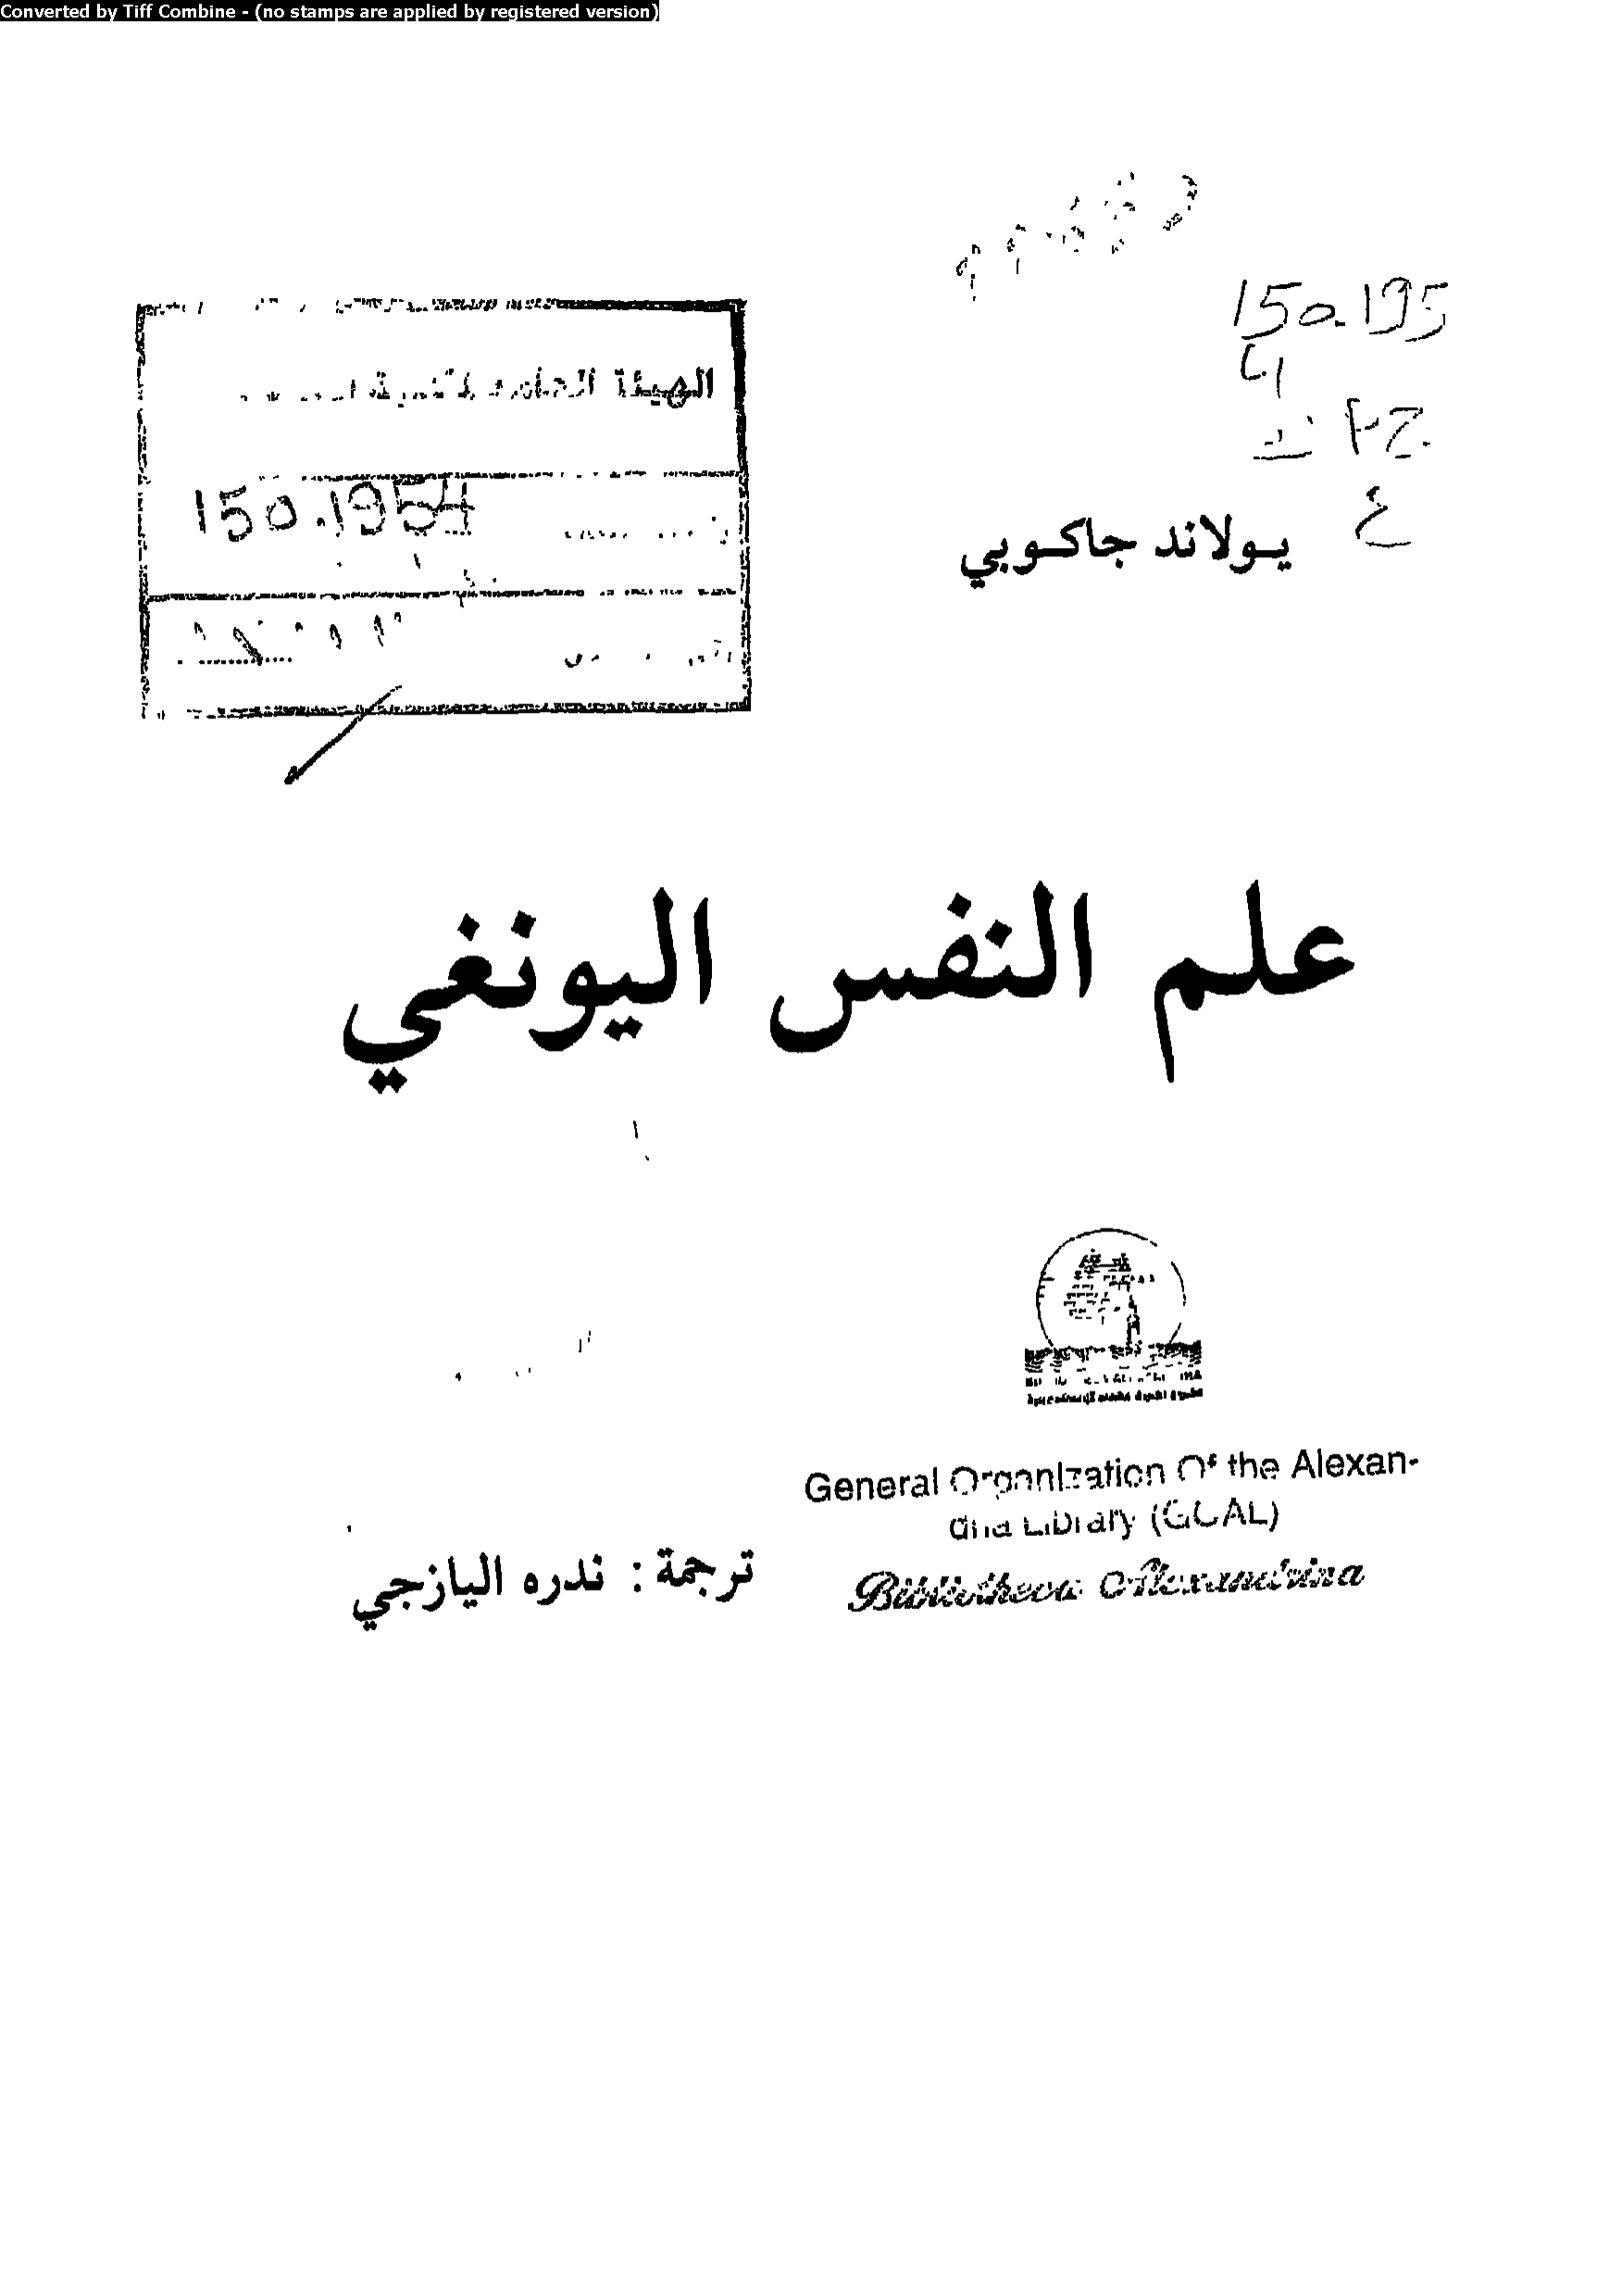 Converted by Tiff Combine - (no stamps are applied by registered version)
150.195
الهيئة
150.1954
يولاند جاكوبي
ع
علم النفس اليونغي
General Organization Of the Alexan-
dria Library (GOAL)
Bibliotheca Alexandrina
ترجمة : ندره اليازجي